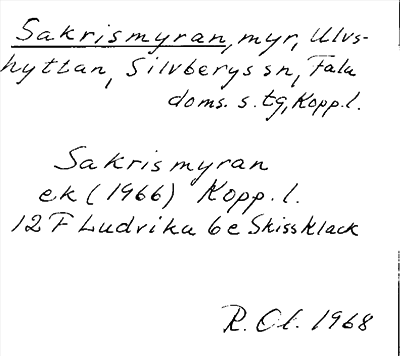 Sakrismyran, myr, Ulvs-
hyttan, Silvbergs sn, Falu
doms. s. tg, Kopp. l.
Sakrismyran
ek (1966) Kopp. l.
12 F Ludvika 6e Skissklack
R. Ol. 1968